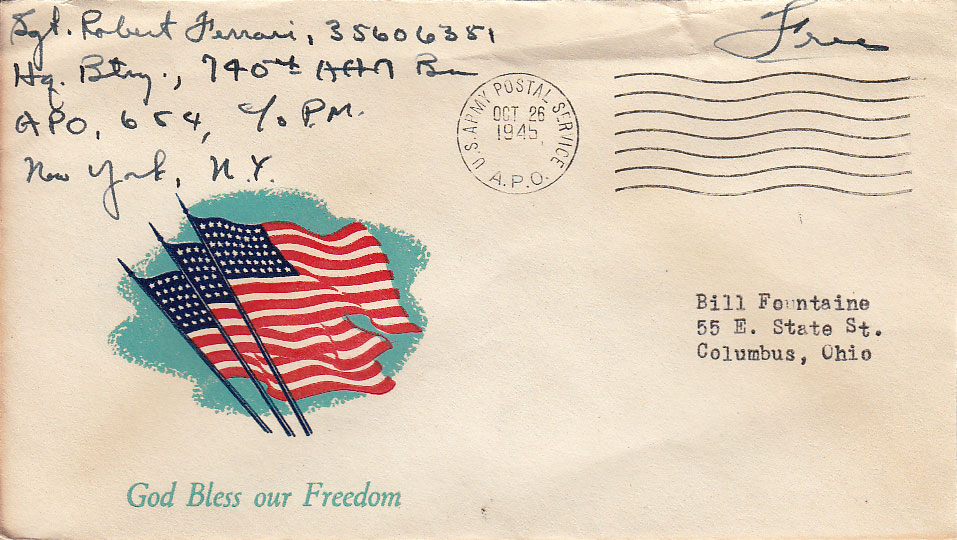 Sgt. Robert Ferrari, 35606351
Hq. Btry., 740th AAA Bn
APO, 654, c/o P.M.
New York, N.Y.
Free
U.S. ARMY POSTAL SERVICE
OCT 26
1945
A.P.O.
Bill Fountaine
55 E. State St.
Columbus, Ohio
God Bless our Freedom